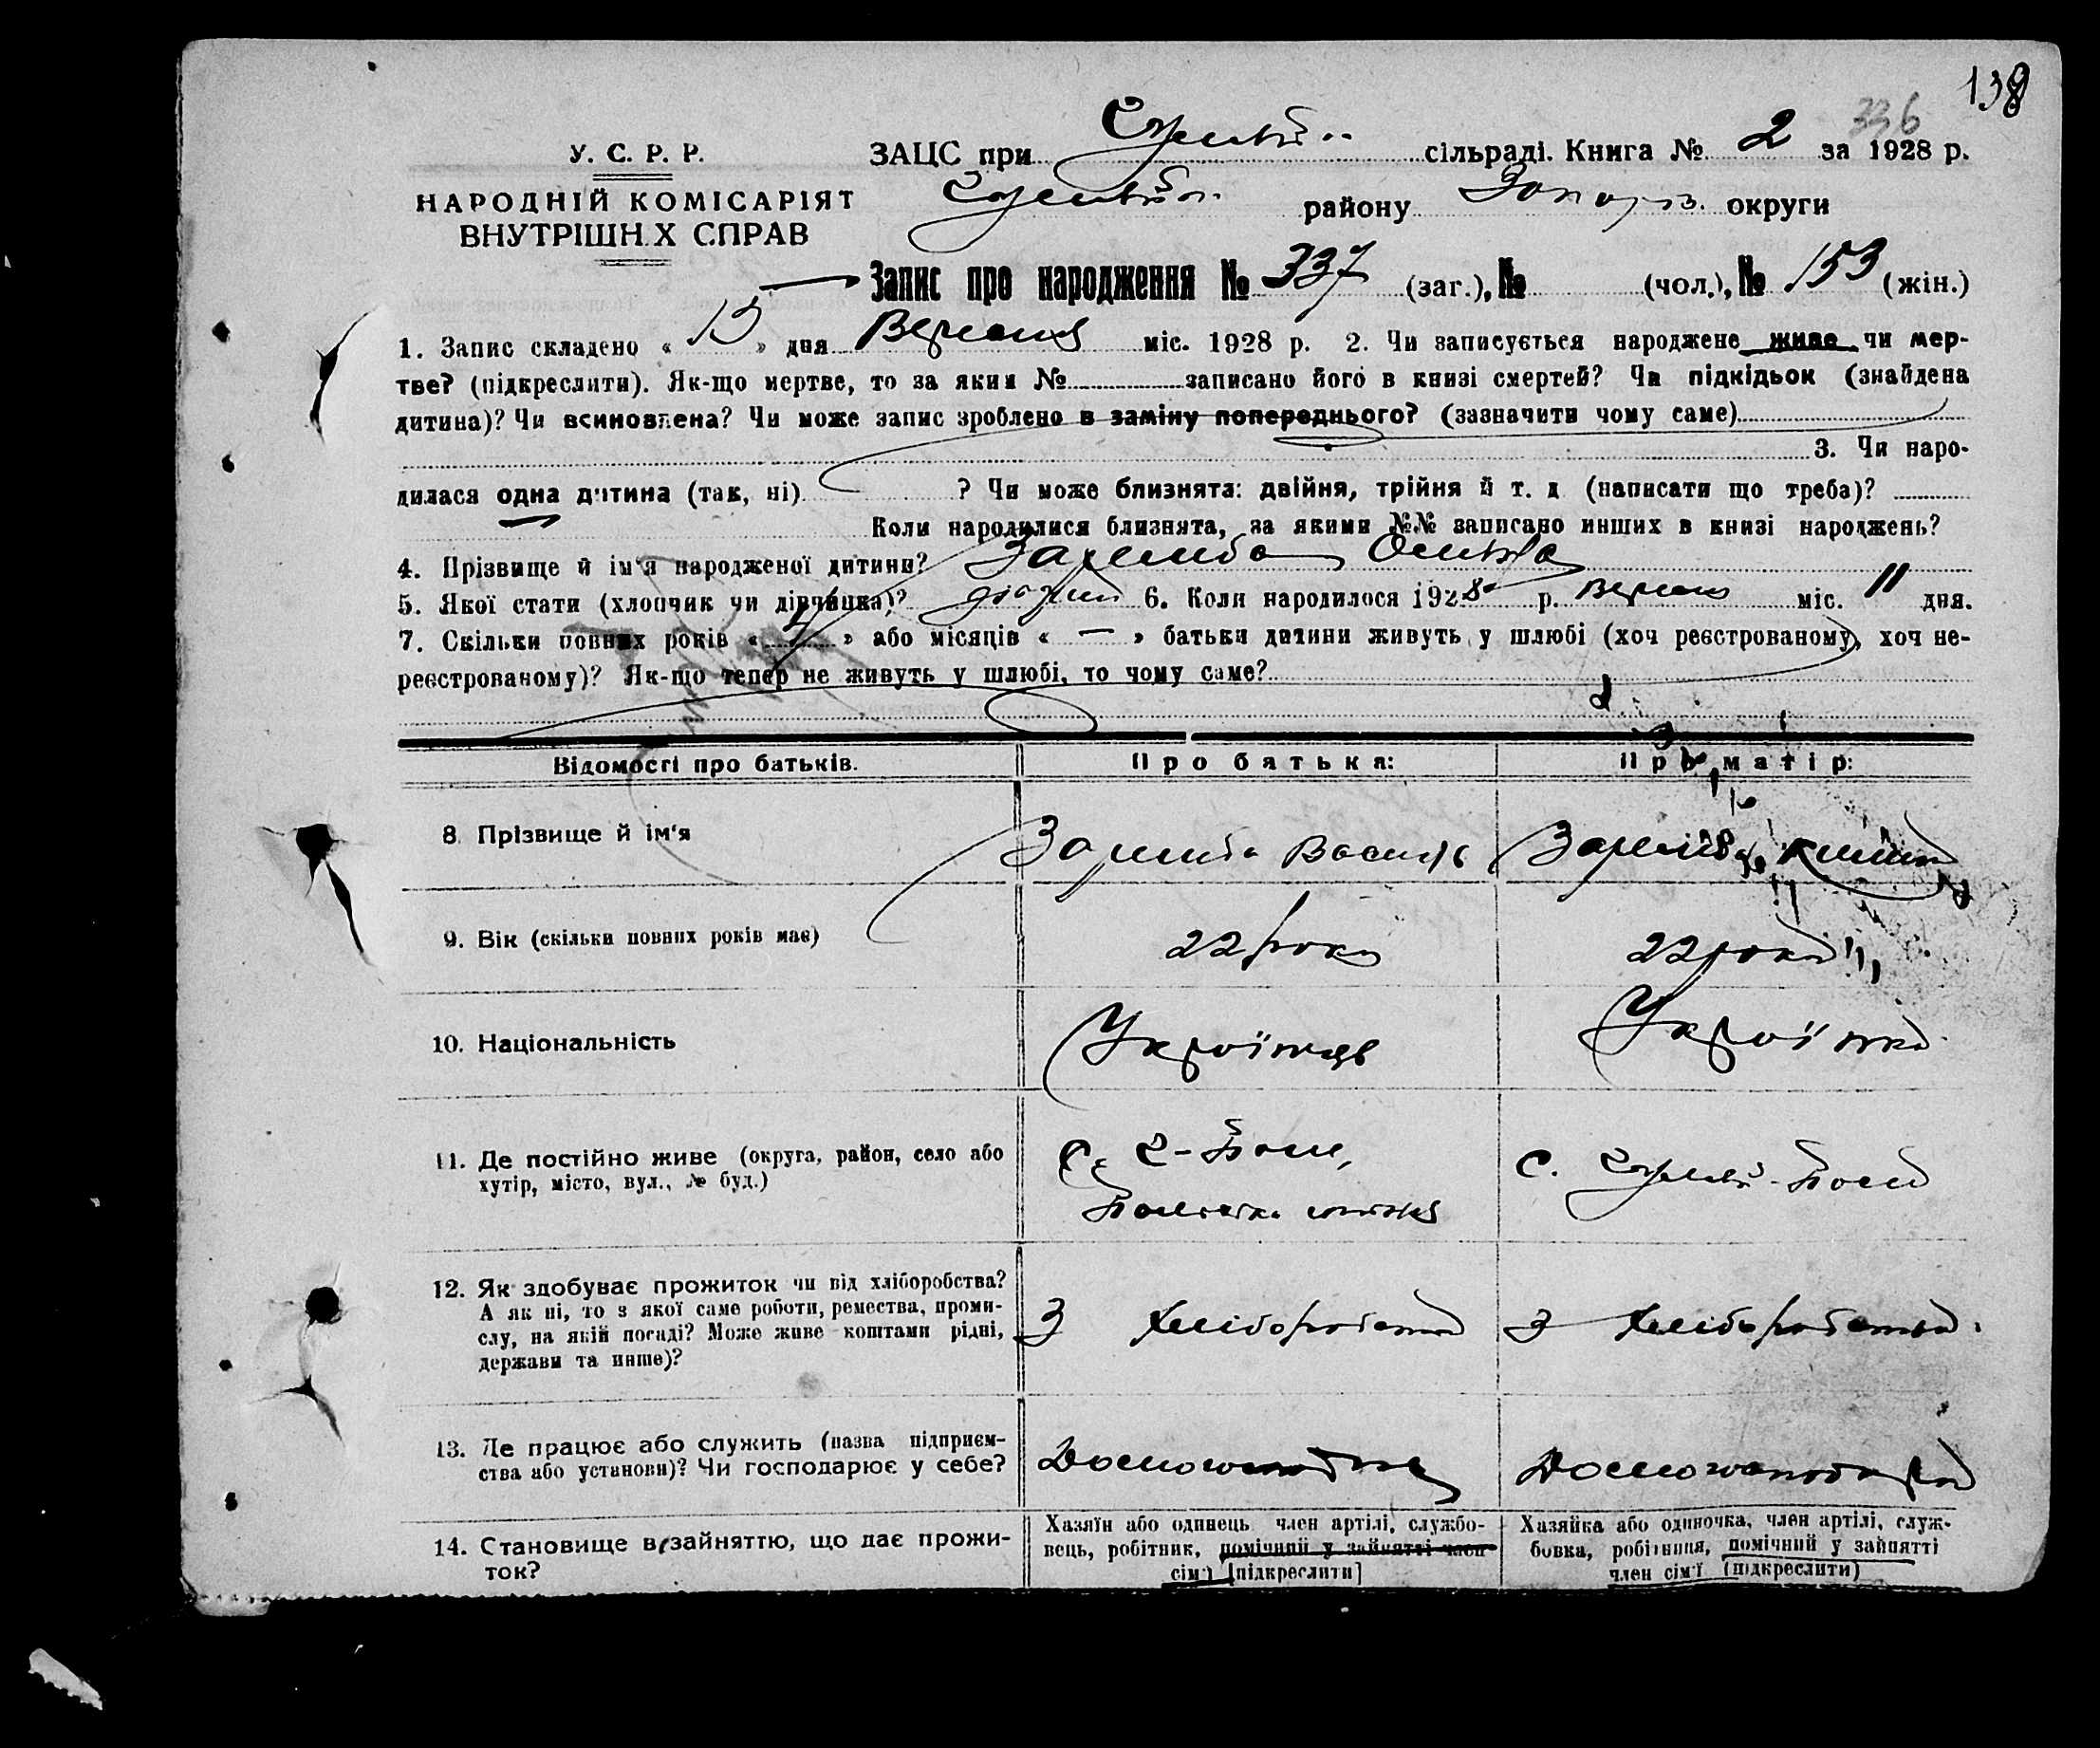 138
336
У. С. Р. Р.
ЗАЦС при сільраді. Книга № 2 за 1928 р.
НАРОДНІЙ КОМІСАРІЯТ
ВНУТРІШН.Х СПРАВ
району Запоріз. округи
Запис про народження № 337 (заг.), № (чол.), № 153 (жін.)
1. Запис складено « 15 » дня Вересня міс. 1928 р. 2. Чи записується народжене живе чи мер-
тве? (підкреслити). Як-що мертве, то за яким № записано його в книзі смертей? Чи підкідьок (знайдена
дитина)? Чи всиновлена? Чи може запис зроблено в заміну попереднього? (зазначити чому саме)
3. Чи наро-
дилася одна дитина (так, ні) ? Чи може близнята: двійня, трійня й т. д (написати що треба)?
Коли народилися близнята, за якими №№ записано инших в книзі народжень?
4. Прізвище й ім'я народженої дитини? Заремба
5. Якої стати (хлопчик чи дівчинка)? 6. Коли народилося 1928 р. Вересня міс. 11 дня.
7. Скільки повних років « » або місяців « — » батьки дитини живуть у шлюбі (хоч реєстрованому, хоч не-
реєстрованому)? Як-що тепер не живуть у шлюбі, то чому саме?
Відомості про батьків. Про батька: Про матір:
8. Прізвище й ім'я Заремба Василь Заремба
9. Вік (скільки повних років має) 22 роки 22 роки
10. Національність Українець Українка
11. Де постійно живе (округа, район, село або
хутір, місто, вул., № буд.)
с.
с.
12. Як здобуває прожиток чи від хліборобства?
А як ні, то з якої саме роботи, ремества, проми-
слу, на якій посаді? Може живе коштами рідні,
держави та инше)?
З Хліборобства З Хліборобства
13. Де працює або служить (назва підприєм-
ства або установи)? Чи господарює у себе?
Домогосподар Домогосподарка
14. Становище в зайняттю, що дає прожи-
ток?
Хазяїн або одинець член артілі, службо-
вець, робітник, помічний у зайнятті член
сім'ї [підкреслити]
Хазяйка або одиночка, член артілі, служ-
бовка, робітниця, помічний у зайнятті
член сім'ї (підкреслити)